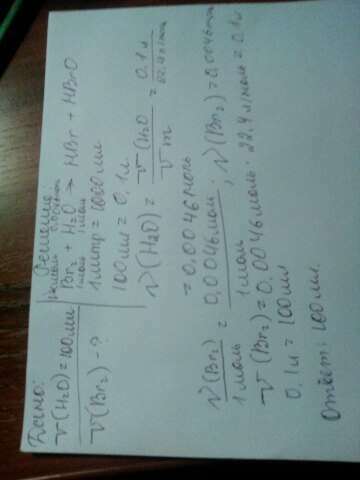 Дано:
V(H₂O) = 100мл
V(Br₂) - ?
Решение
xмоль 0,0046моль
Br₂ + H₂O → HBr + HBrO
1моль 1моль
1литр = 1000мл
100мл = 0,1л.
ν(H₂O) = V(H₂O / Vm = 0.1л / 22,4л/моль = 0,0046моль
ν(Br₂) / 1моль = 0,0046моль / 1моль , ν(Br₂) = 0,0046моль
V(Br₂) = 0,0046моль · 22,4л/моль = 0.1л
0,1л = 100мл
Ответ: 100мл.